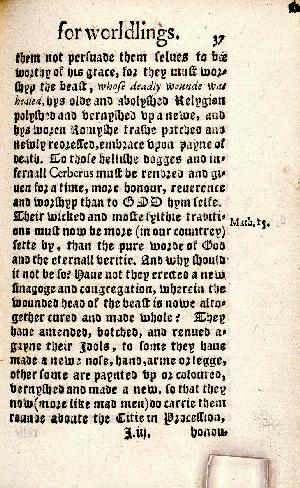 for worldlings. 37
them not persuade them selues to bee
worthy of his grace, for they must wor-
shyp the beast, whose deadly wounde was
healed, hys olde and abolyshed Relygion
polyshed and vernyshed vp a newe, and
hys woren Romyshe trashe patched and
newly redressed, embrace vpon payne of
death. To those hellishe dogges and in-
fernall Cerberus must be rendred and gi-
uen for a time, more honour, reuerence
and worshyp than to GOD hym selfe.
Their wicked and moste fylthie traditi-
ons must now be more (in our countrey) Math. 15.
sette by, than the pure worde of God
and the eternall veritie. And why should
it not be so? Haue not they erected a new
sinagoge and congregation, wherein the
wounded head of the beast is nowe alto-
gether cured and made whole? They
haue amended, botched, and renued a-
gayne their Idols, to some they haue
made a newe nose, hand, arme or legge,
other some are paynted vp or coloured,
vernyshed and made a new. so that they
now (more like mad men) do carrie them
rounde aboute the Citie in Procession,
J.iij. honou-